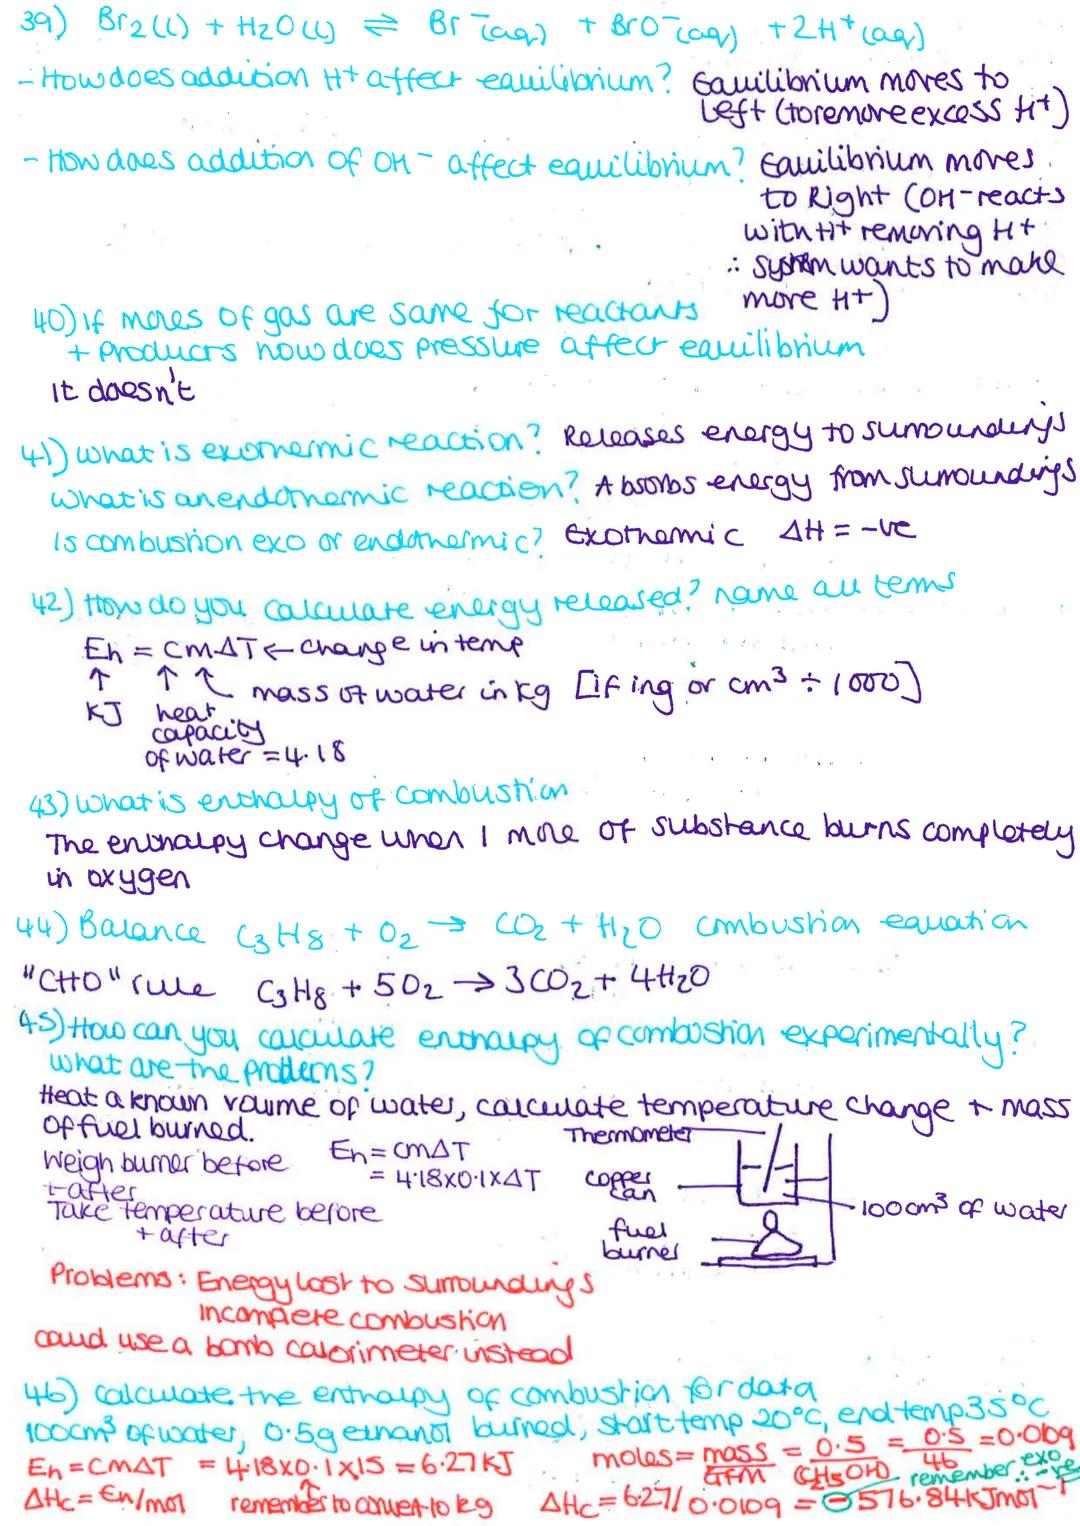 39) Br₂(l) + H₂O(l) ⇌ Br⁻(aq) + BrO⁻(aq) + 2H⁺(aq)
- How does addition H⁺ affect equilibrium? Equilibrium moves to
Left (to remove excess H⁺)
- How does addition of OH⁻ affect equilibrium? Equilibrium moves
to Right (OH⁻ reacts
with H⁺ removing H⁺
∴ system wants to make
more H⁺)
40) If moles of gas are same for reactants
+ Products how does pressure affect equilibrium
It doesn't
41) What is exothermic reaction? Releases energy to surroundings
What is an endothermic reaction? Absorbs energy from surroundings
Is combustion exo or endothermic? Exothermic ΔH = -ve
42) How do you calculate energy released? name all terms
Eh = cmΔT ← change in temp
↑ ↑ ↑ mass of water in kg [if in g or cm³ ÷ 1000]
KJ heat
capacity
of water = 4.18
43) What is enthalpy of combustion
The enthalpy change when 1 mole of substance burns completely
in oxygen
44) Balance C₃H₈ + O₂ → CO₂ + H₂O combustion equation
"CHO" rule C₃H₈ + 5O₂ → 3CO₂ + 4H₂O
45) How can you calculate enthalpy of combustion experimentally?
What are the problems?
Heat a known volume of water, calculate temperature change + mass
of fuel burned.
Weigh burner before
+ after
Take temperature before
+ after
Eh = cmΔT
= 4.18x0.1xΔT
Thermometer
copper
can
fuel
burner
100cm³ of water
Problems: Energy lost to surroundings
Incomplete combustion
could use a bomb calorimeter instead
46) Calculate the enthalpy of combustion for data
100cm³ of water, 0.5g ethanol burned, start temp 20°C, end temp 35°C
Eh = cmΔT = 4.18x0.1x15 = 6.27KJ moles = mass/GFM = 0.5/(C₂H₅OH) = 0.5/46 = 0.0109
remember exo ∴ -ve
ΔHc = Eh/mol remember to convert to kg ΔHc = 6.27/0.0109 = -576.84KJmol⁻¹